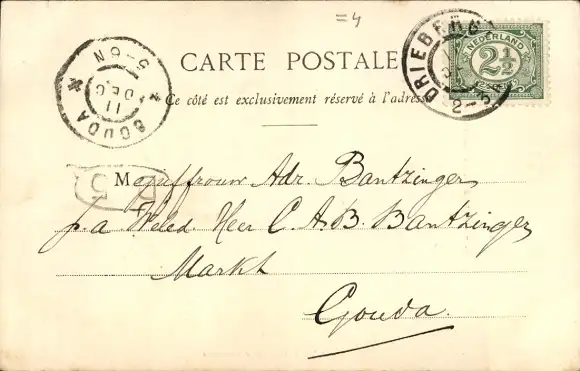 =4
CARTE POSTALE
Ce côté est exclusivement réservé à l'adresse
NEDERLAND
2½
DRIEBERGEN
2-3
GOUDA
11 DEC
5-8N
Mejuffrouw Adr. Bantzinger
p.a Weled. Heer C.A.B. Bantzinger
Markt
Gouda.